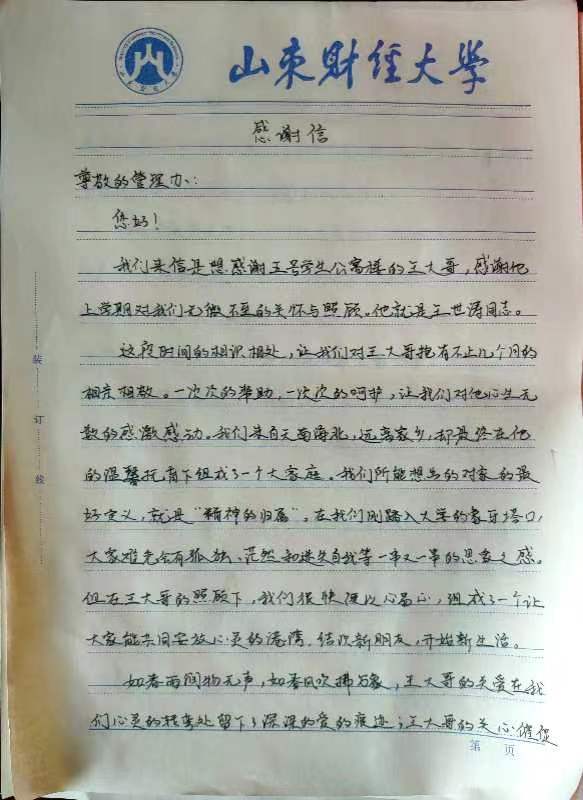 山东财经大学
感谢信
尊敬的管理办:
您好!
我们来信是想感谢五号学生公寓楼的王大哥,感谢他
上学期对我们无微不至的关怀与照顾。他就是王世涛同志。
这段时间的相识相处,让我们对王大哥抱有不止几个月的
相亲相敬。一次次的帮助,一次次的呵护,让我们对他衍生无
数的感激感动。我们来自天南海北,远离家乡,却最终在他
的温馨托育下组成了一个大家庭。我们所能想出的对家的最
好定义,就是“精神的归属”。在我们刚踏入大学的象牙塔口,
大家难免会有孤独、茫然和迷失自我等一串又一串的思家之感。
但在王大哥的照顾下,我们很快便以心易心,组成了一个让
大家能共同安放心灵的港湾。结识新朋友,开始新生活。
如春雨润物无声,如春风吹拂万家,王大哥的关爱在我
们心灵的拐弯处留下了深深的爱的痕迹;王大哥的关心催促
装
订
线
第 页